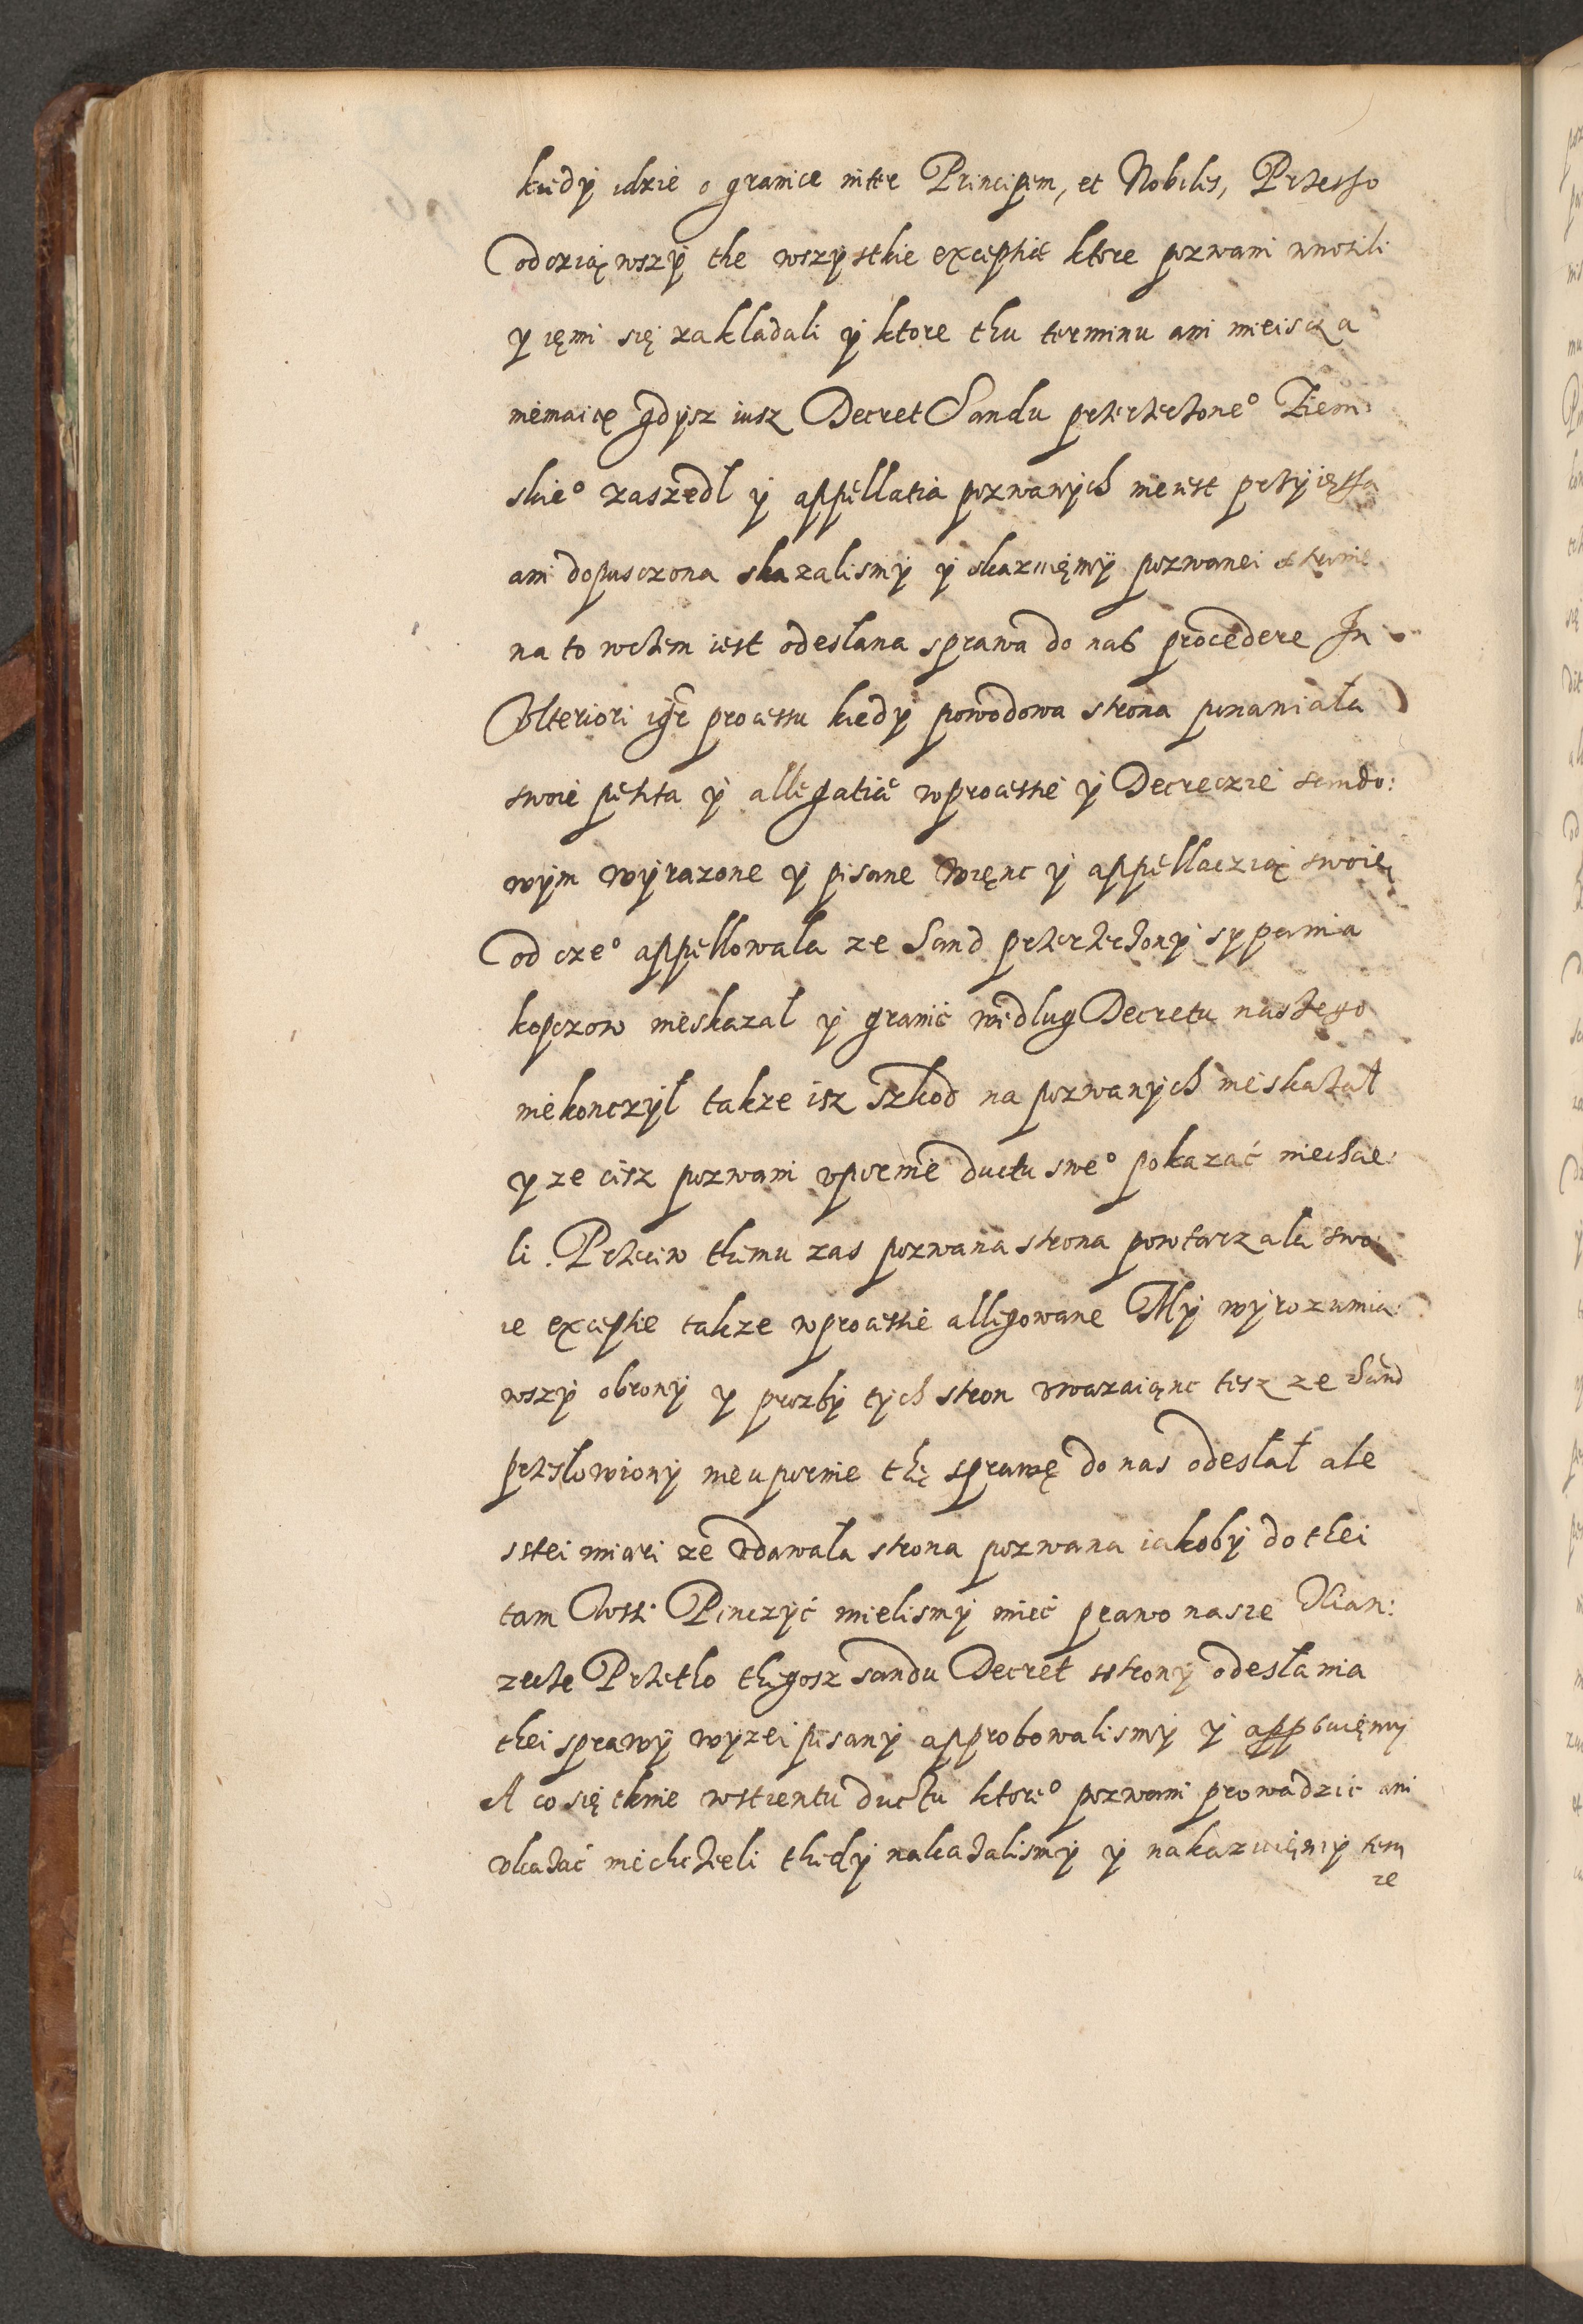 kiedÿ idzie o granice inter Principem, et Nobiles, Przesso
odcziąwszÿ the wszÿstkie exceptie ktore pozwani wnosili
y iemi się zakladali ÿ ktore thu terminu ani mieiscza
niemaię gdÿsz iusz Decret Sandu przerzeczone° Ziem:
skie° zaszedl ÿ appellatia pozwanÿch nieiest przÿięssa
ani dopusczona skazalismÿ ÿ skazuięmÿ pozwanei stronie
na to wczem iest odeslana sprawa do nas procedere In
Vlteriori igr processu kiedÿ powodowa strona ponawiała
swoie petita ÿ allegatie wprocessie ÿ Decreczie sendo:
wÿm wÿrazone ÿ pisane Więnc ÿ appellaczią swoię
od cze° appellowala ze Sand przerzeczonÿ sypania
kopczow nieskazal ÿ granic wedlug Decretu naszego
niekonczÿl takze isz szkod na pozwanÿch nieskazał
y ze cisz pozwani vpornie ductu swe° pokazać niechcie:
li. Przeciw themu zas pozwana strona powtarzala swo
ie exceptie takze wprocessie allegowane Mÿ wÿrozumia:
wszÿ obronÿ y prozbÿ tÿch stron vwazaiąnc tesz ze Sand
przesłowionÿ nieupornie thę sprawę do nas odesłał ale
sstei miari ze vdawała strona pozwana iakobÿ do thei
tam Wssi Pinczÿć mielismÿ mieć prawo nasze Xian:
zecze Przetho thegosz sandu Decret sstronÿ odesłania
thei sprawÿ wyzei pisanÿ approbowalismÿ ÿ appbuięmÿ
A co się tknie wstrentu ductu ktore° pozwani prowadzic ani
vkazać niechczieli thedÿ nakazalismÿ ÿ nakazuięmÿ tem
ze